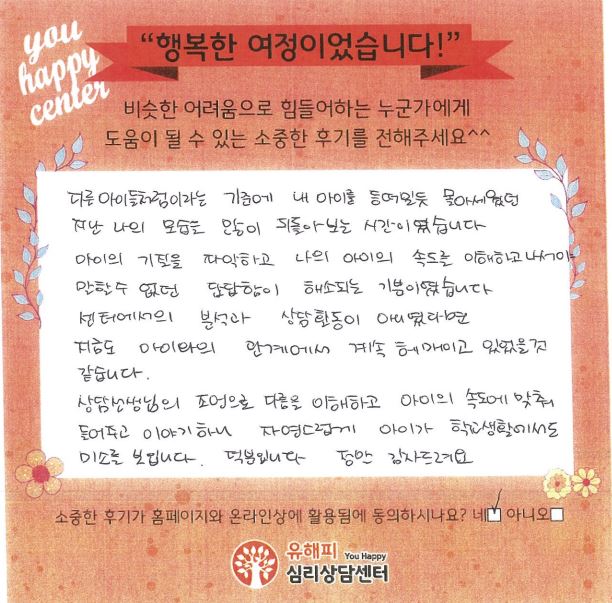 you
happy
center
“행복한 여정이었습니다!”
비슷한 어려움으로 힘들어하는 누군가에게
도움이 될 수 있는 소중한 후기를 전해주세요^^
다른 아이들처럼이라는 기준에 내 아이를 등떠밀듯 몰아세웠던
지난 나의 모습을 많이 되돌아보는 시간이였습니다
아이의 기질을 파악하고 나의 아이의 속도를 이해하고 나서
말할수 없던 답답함이 해소되는 기분이였습니다
센터에서의 분석과 상담활동이 아니였다면
지금도 아이와의 관계에서 계속 헤매이고 있었을것
같습니다.
상담선생님의 조언으로 다름을 이해하고 아이의 속도에 맞춰
들어주고 이야기하니 자연스럽게 아이가 학교생활에서도
미소를 보입니다. 덕분입니다 정말 감사드려요
소중한 후기가 홈페이지와 온라인상에 활용됨에 동의하시나요? 네☑ 아니오□
유해피 You Happy
심리상담센터